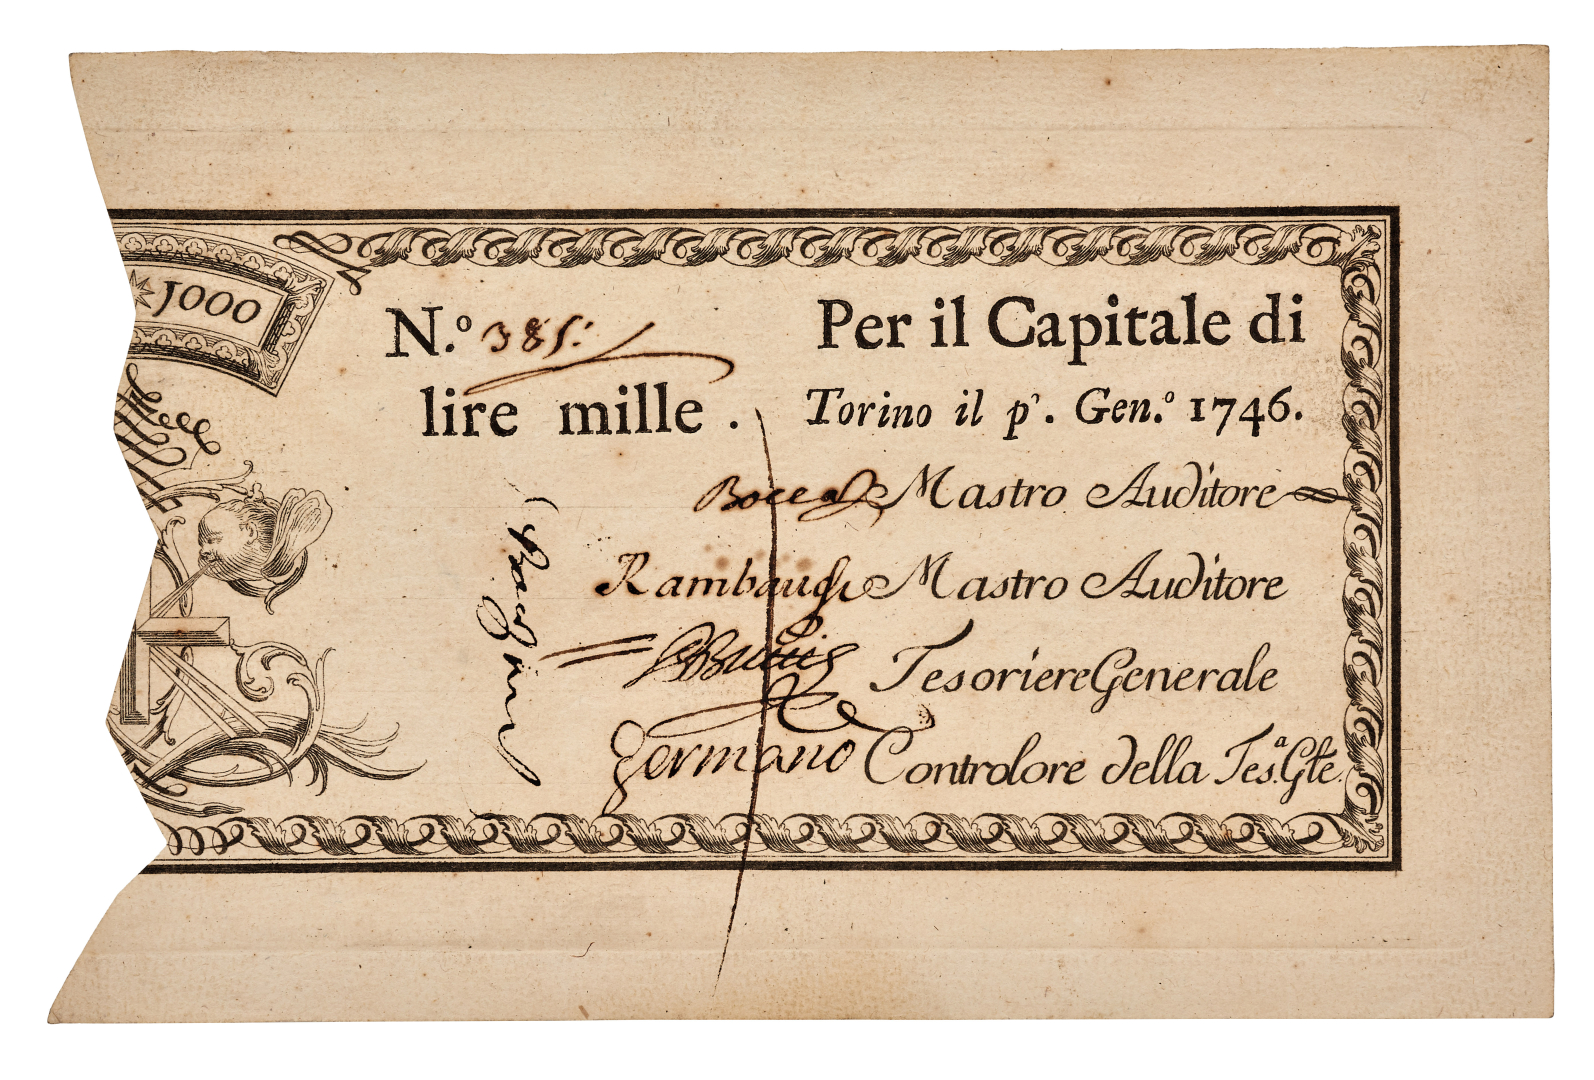 1000
N.º 385: Per il Capitale di
lire mille. Torino il p˺. Gen.º 1746.
Mastro Auditore
Mastro Auditore
Tesoriere Generale
Germano Controlore della Tes.ª Gͭͤle.